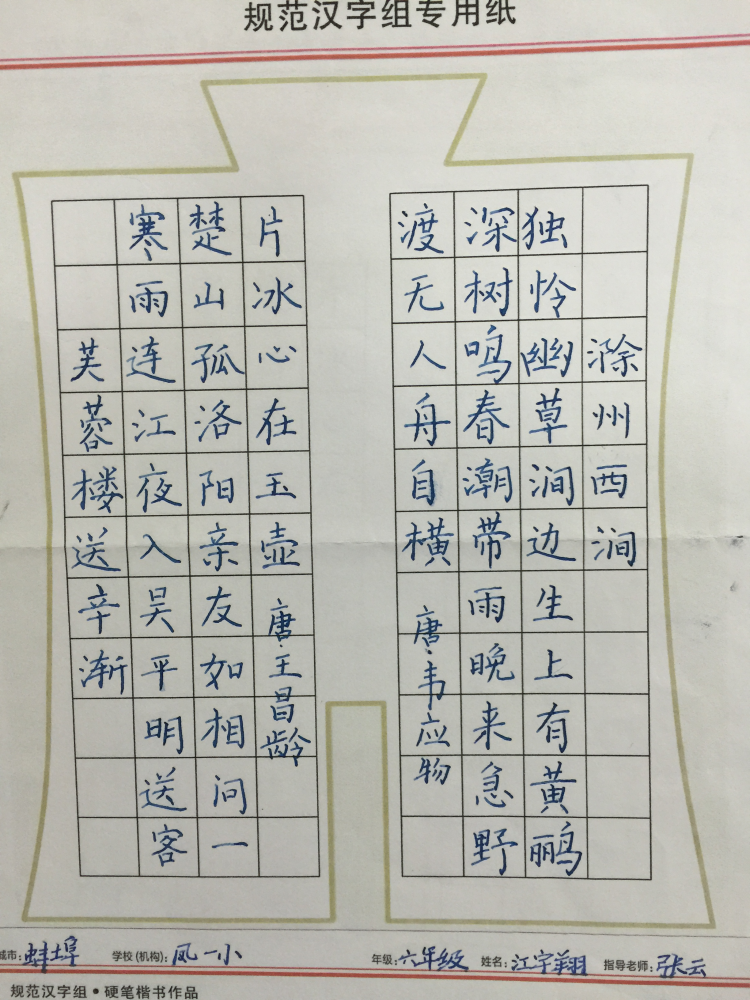 规范汉字组专用纸
滁州西涧
独怜幽草涧边生上有黄鹂
深树鸣春潮带雨晚来急野
渡无人舟自横
唐·韦应物
芙蓉楼送辛渐
寒雨连江夜入吴平明送客
楚山孤洛阳亲友如相问一
片冰心在玉壶
唐·王昌龄
城市:蚌埠 学校(机构):凤一小 年级:六年级 姓名:江宇翔 指导老师:张云
规范汉字组·硬笔楷书作品